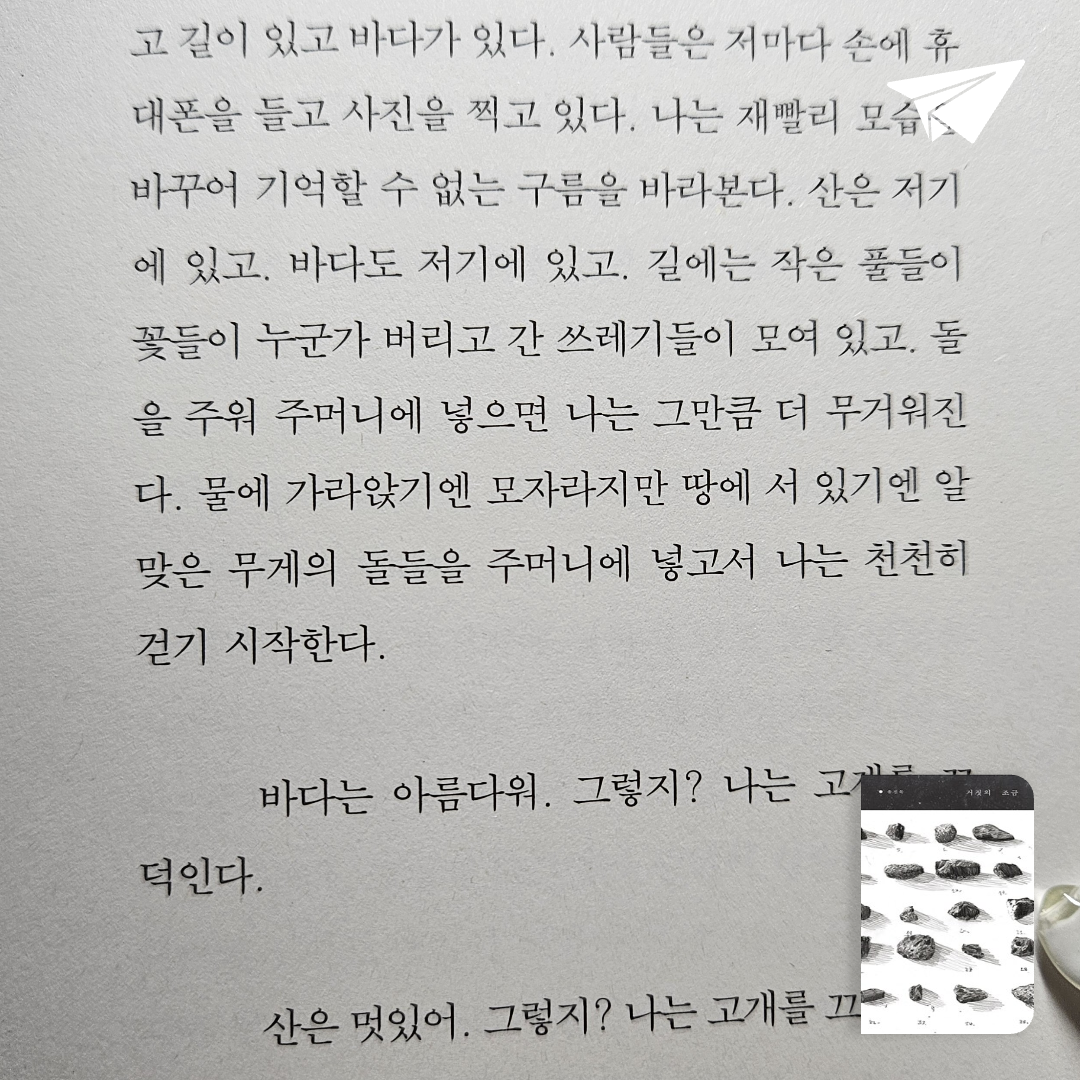 고 길이 있고 바다가 있다. 사람들은 저마다 손에 휴
대폰을 들고 사진을 찍고 있다. 나는 재빨리 모습을
바꾸어 기억할 수 없는 구름을 바라본다. 산은 저기
에 있고. 바다도 저기에 있고. 길에는 작은 풀들이
꽃들이 누군가 버리고 간 쓰레기들이 모여 있고. 돌
을 주워 주머니에 넣으면 나는 그만큼 더 무거워진
다. 물에 가라앉기엔 모자라지만 땅에 서 있기엔 알
맞은 무게의 돌들을 주머니에 넣고서 나는 천천히
걷기 시작한다.
바다는 아름다워. 그렇지? 나는 고개를
덕인다.
산은 멋있어. 그렇지? 나는 고개를 끄
거짓의 조금